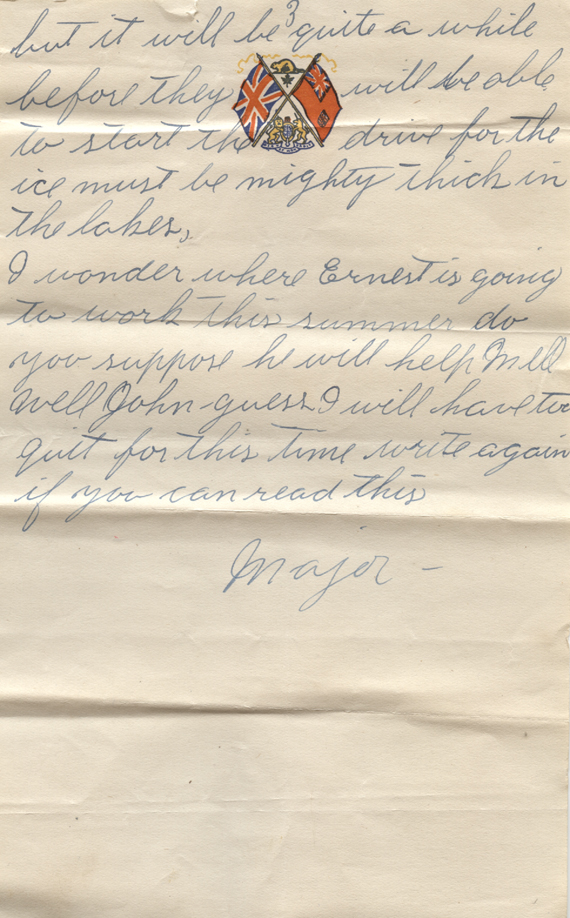 3
but it will be quite a while
before they will be able
to start the drive for the
ice must be mighty thick in
the lakes,
I wonder where Ernest is going
to work this summer do
you suppose he will help Mell
Well John guess I will have too
quit for this time write again
if you can read this
Major -